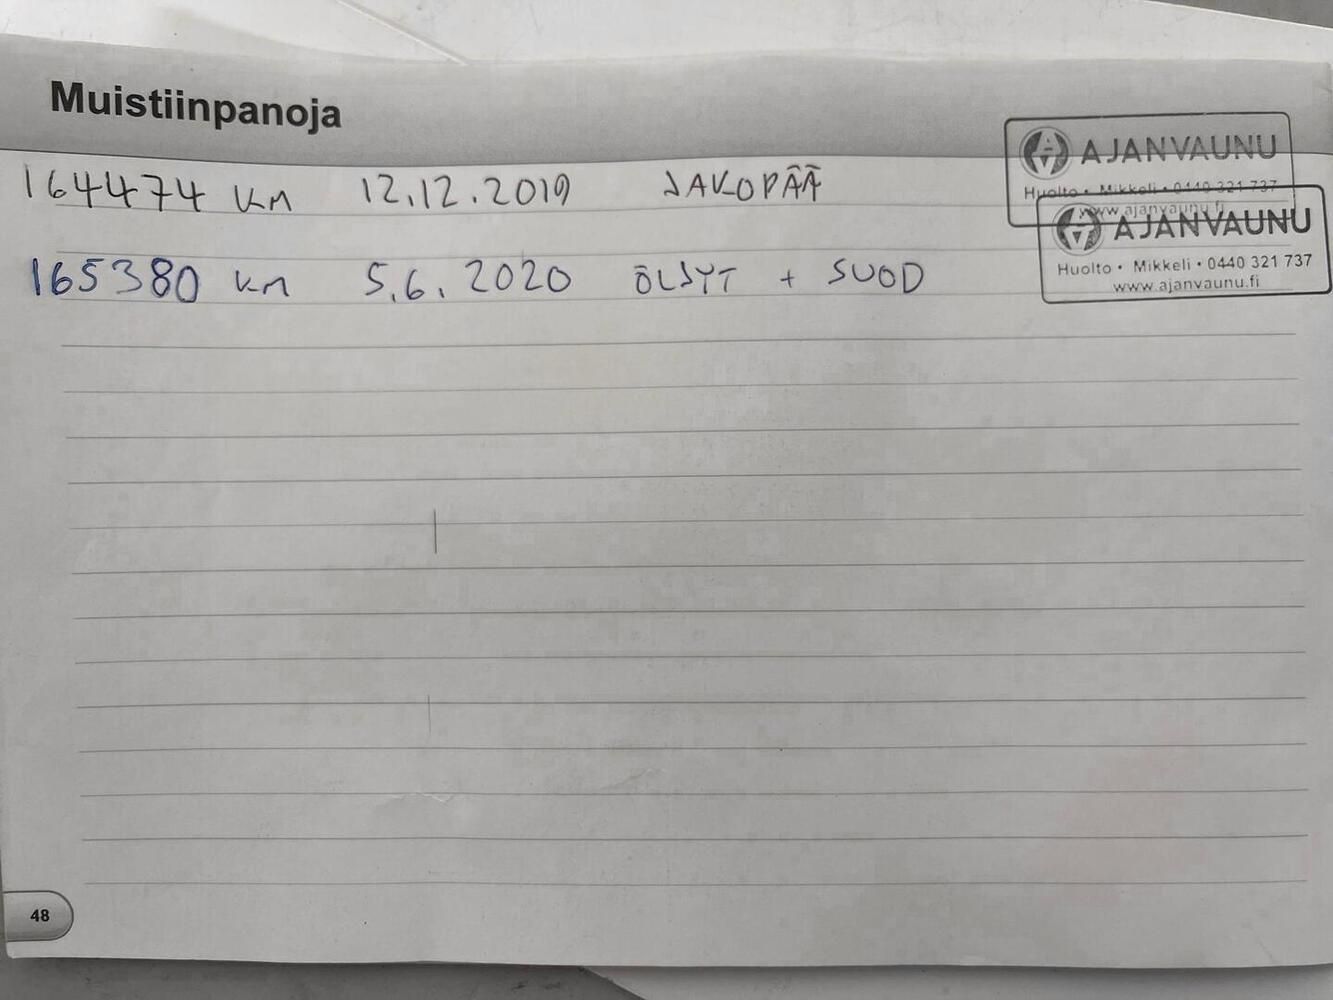 Muistiinpanoja
164474 km 12.12.2019 JAKOPÄÄ
AJANVAUNU
Huolto • Mikkeli • 0440 321 737
www.ajanvaunu.fi
165380 km 5.6.2020 ÖLJYT + SUOD
AJANVAUNU
Huolto • Mikkeli • 0440 321 737
www.ajanvaunu.fi
48